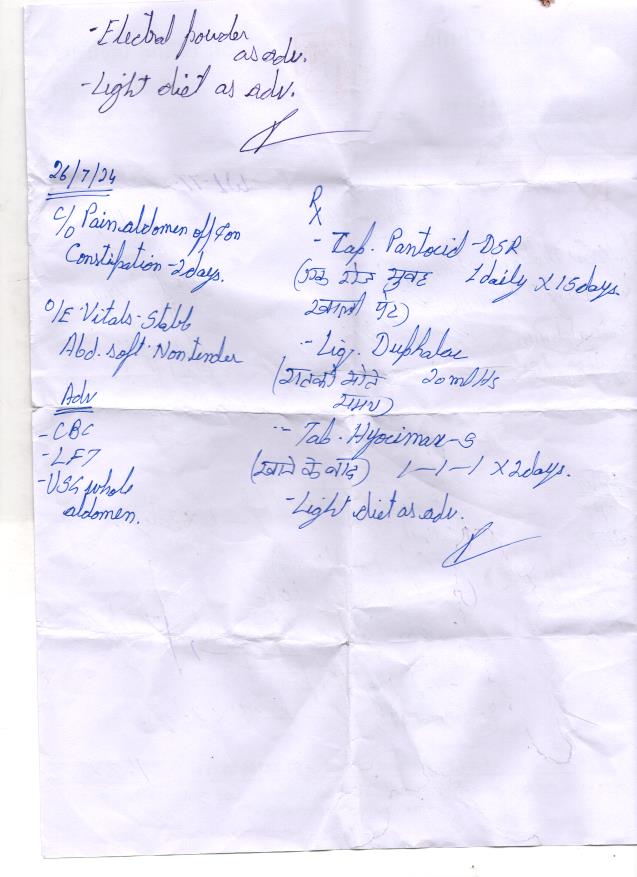 - Electral powder
as adv.
- Light diet as adv.
26/7/24
C/O Pain abdomen off & on
Constipation - 2 days.
O/E Vitals - Stable
Abd. soft. Non tender
Adv
- CBC
- LFT
- USG whole
abdomen.
Rx
- Tab. Pantocid - DSR
(एक रोज सुबह 1 daily x 15 days.
खाली पेट)
- Liq. Duphalac
(रात को सोते 20 ml Hs
समय)
- Tab. Hyocimax - S
(खाने के बाद) 1-1-1 x 2 days.
- Light diet as adv.